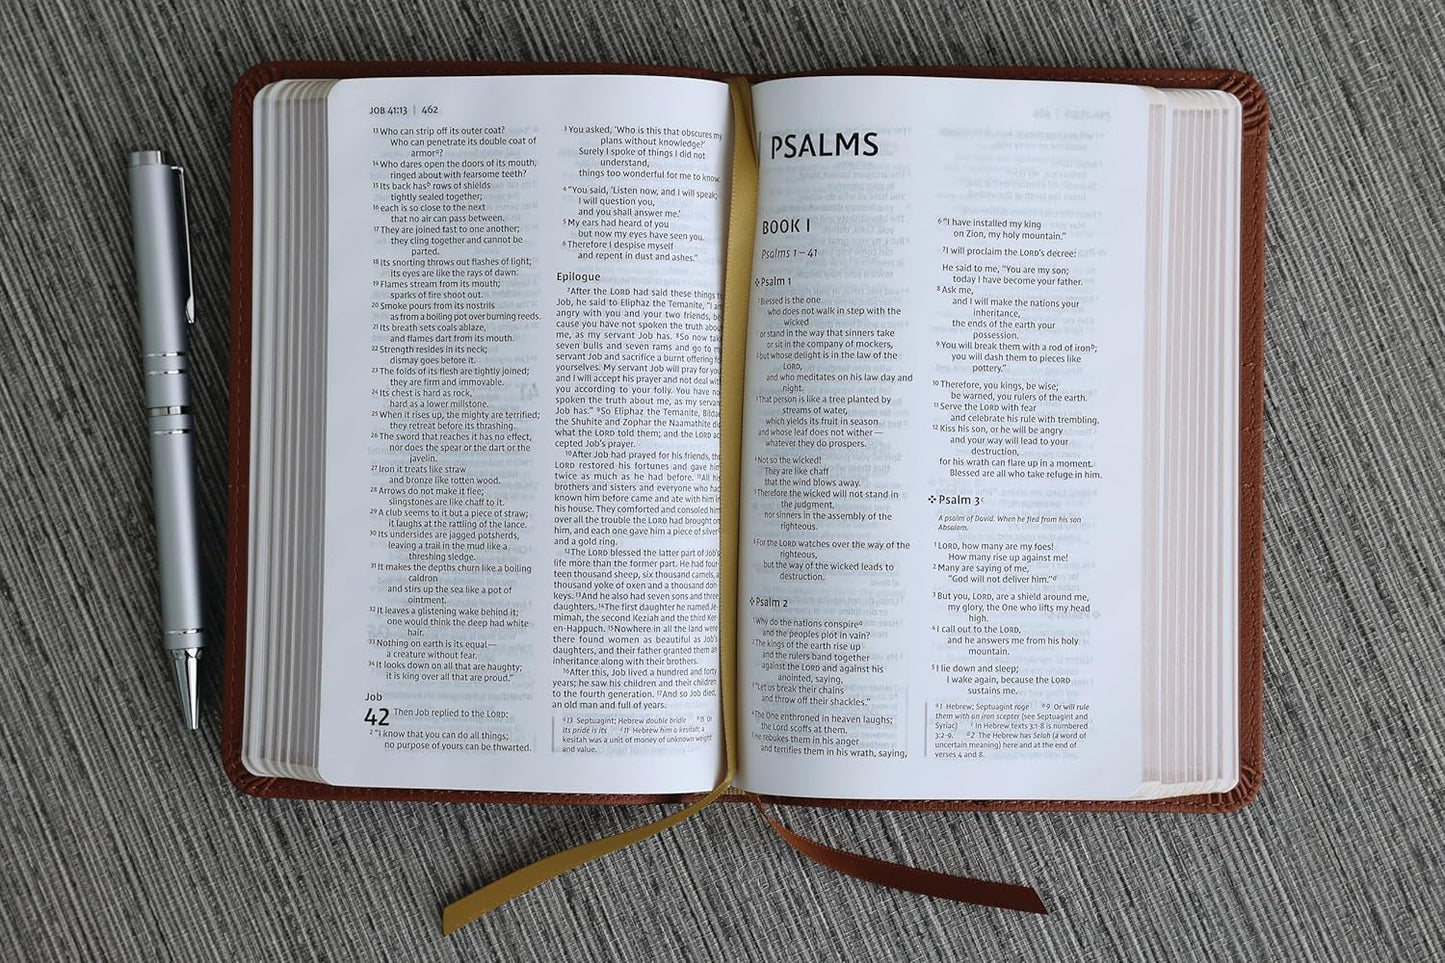 JOB 41:13 | 462
13 Who can strip off its outer coat?
Who can penetrate its double coat of
armor a?
14 Who dares open the doors of its mouth,
ringed about with fearsome teeth?
15 Its back has b rows of shields
tightly sealed together;
16 each is so close to the next
that no air can pass between.
17 They are joined fast to one another;
they cling together and cannot be
parted.
18 Its snorting throws out flashes of light;
its eyes are like the rays of dawn.
19 Flames stream from its mouth;
sparks of fire shoot out.
20 Smoke pours from its nostrils
as from a boiling pot over burning reeds.
21 Its breath sets coals ablaze,
and flames dart from its mouth.
22 Strength resides in its neck;
dismay goes before it.
23 The folds of its flesh are tightly joined;
they are firm and immovable.
24 Its chest is hard as rock,
hard as a lower millstone.
25 When it rises up, the mighty are terrified;
they retreat before its thrashing.
26 The sword that reaches it has no effect,
nor does the spear or the dart or the
javelin.
27 Iron it treats like straw
and bronze like rotten wood.
28 Arrows do not make it flee;
slingstones are like chaff to it.
29 A club seems to it but a piece of straw;
it laughs at the rattling of the lance.
30 Its undersides are jagged potsherds,
leaving a trail in the mud like a
threshing sledge.
31 It makes the depths churn like a boiling
caldron
and stirs up the sea like a pot of
ointment.
32 It leaves a glistening wake behind it;
one would think the deep had white
hair.
33 Nothing on earth is its equal—
a creature without fear.
34 It looks down on all that are haughty;
it is king over all that are proud.”
Job
42 Then Job replied to the LORD:
2 “I know that you can do all things;
no purpose of yours can be thwarted.
3 You asked, ‘Who is this that obscures my
plans without knowledge?’
Surely I spoke of things I did not
understand,
things too wonderful for me to know.
4 “You said, ‘Listen now, and I will speak;
I will question you,
and you shall answer me.’
5 My ears had heard of you
but now my eyes have seen you.
6 Therefore I despise myself
and repent in dust and ashes.”
Epilogue
7 After the LORD had said these things to
Job, he said to Eliphaz the Temanite, “I am
angry with you and your two friends, be-
cause you have not spoken the truth about
me, as my servant Job has. 8 So now take
seven bulls and seven rams and go to my
servant Job and sacrifice a burnt offering for
yourselves. My servant Job will pray for you,
and I will accept his prayer and not deal with
you according to your folly. You have not
spoken the truth about me, as my servant
Job has.” 9 So Eliphaz the Temanite, Bildad
the Shuhite and Zophar the Naamathite did
what the LORD told them; and the LORD ac-
cepted Job’s prayer.
10 After Job had prayed for his friends, the
LORD restored his fortunes and gave him
twice as much as he had before. 11 All his
brothers and sisters and everyone who had
known him before came and ate with him in
his house. They comforted and consoled him
over all the trouble the LORD had brought on
him, and each one gave him a piece of silver c
and a gold ring.
12 The LORD blessed the latter part of Job’s
life more than the former part. He had four-
teen thousand sheep, six thousand camels, a
thousand yoke of oxen and a thousand don-
keys. 13 And he also had seven sons and three
daughters. 14 The first daughter he named Je-
mimah, the second Keziah and the third Ker-
en-Happuch. 15 Nowhere in all the land were
there found women as beautiful as Job’s
daughters, and their father granted them an
inheritance along with their brothers.
16 After this, Job lived a hundred and forty
years; he saw his children and their children
to the fourth generation. 17 And so Job died,
an old man and full of years.
a 13 Septuagint; Hebrew double bridle b 15 Or
Its pride is its c 11 Hebrew him a kesitah; a
kesitah was a unit of money of unknown weight
and value.
PSALMS
BOOK I
Psalms 1–41
Psalm 1
1 Blessed is the one
who does not walk in step with the
wicked
or stand in the way that sinners take
or sit in the company of mockers,
2 but whose delight is in the law of the
LORD,
and who meditates on his law day and
night.
3 That person is like a tree planted by
streams of water,
which yields its fruit in season
and whose leaf does not wither—
whatever they do prospers.
4 Not so the wicked!
They are like chaff
that the wind blows away.
5 Therefore the wicked will not stand in
the judgment,
nor sinners in the assembly of the
righteous.
6 For the LORD watches over the way of the
righteous,
but the way of the wicked leads to
destruction.
Psalm 2
1 Why do the nations conspire a
and the peoples plot in vain?
2 The kings of the earth rise up
and the rulers band together
against the LORD and against his
anointed, saying,
3 “Let us break their chains
and throw off their shackles.”
4 The One enthroned in heaven laughs;
the Lord scoffs at them.
5 He rebukes them in his anger
and terrifies them in his wrath, saying,
6 “I have installed my king
on Zion, my holy mountain.”
7 I will proclaim the LORD’s decree:
He said to me, “You are my son;
today I have become your father.
8 Ask me,
and I will make the nations your
inheritance,
the ends of the earth your
possession.
9 You will break them with a rod of iron b;
you will dash them to pieces like
pottery.”
10 Therefore, you kings, be wise;
be warned, you rulers of the earth.
11 Serve the LORD with fear
and celebrate his rule with trembling.
12 Kiss his son, or he will be angry
and your way will lead to your
destruction,
for his wrath can flare up in a moment.
Blessed are all who take refuge in him.
Psalm 3 c
A psalm of David. When he fled from his son
Absalom.
1 LORD, how many are my foes!
How many rise up against me!
2 Many are saying of me,
“God will not deliver him.” d
3 But you, LORD, are a shield around me,
my glory, the One who lifts my head
high.
4 I call out to the LORD,
and he answers me from his holy
mountain.
5 I lie down and sleep;
I wake again, because the LORD
sustains me.
a 1 Hebrew; Septuagint rage b 9 Or will rule
them with an iron scepter (see Septuagint and
Syriac) c In Hebrew texts 3:1-8 is numbered
3:2-9. d 2 The Hebrew has Selah (a word of
uncertain meaning) here and at the end of
verses 4 and 8.